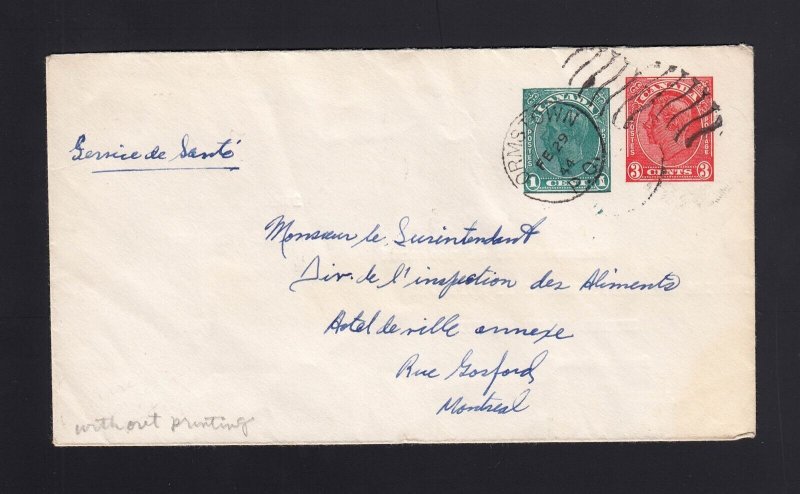 CANADA
POSTES POSTAGE
1 CENT 1
CANADA
POSTES POSTAGE
3 CENTS 3
ORMSTOWN
FE 29
44
P.Q.
Service de Santé
Monsieur le Surintendant
Div. de l'inspection des Aliments
Hotel de ville annexe
Rue Gosford
Montreal
without printing